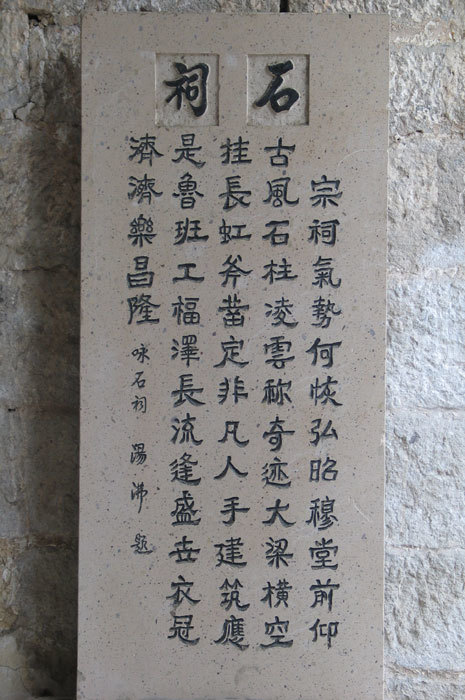 石祠
宗祠氣勢何恢弘昭穆堂前仰
古風石柱凌雲称奇迹大梁橫空
挂長虹斧凿定非凡人手建筑應
是魯班工福澤長流逢盛世衣冠
濟濟樂昌隆 咏石祠 湯沸 題